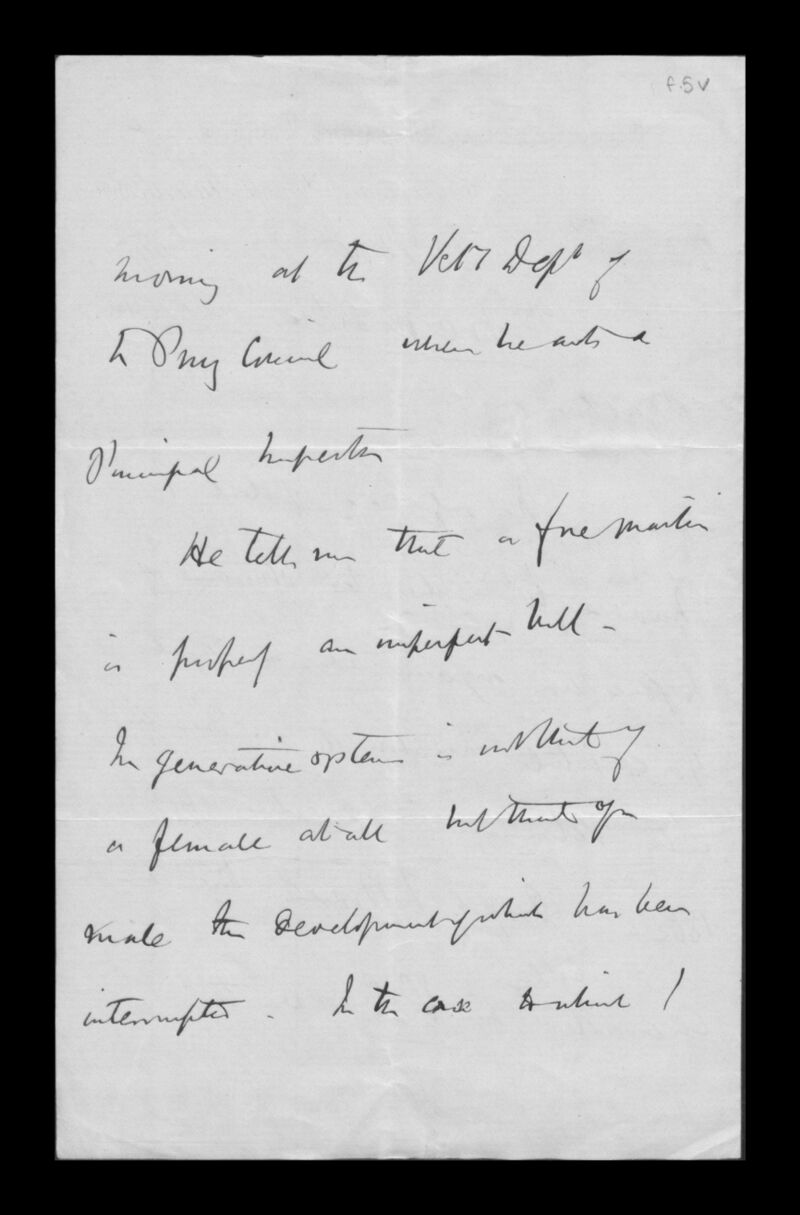 f.5v
morning at the Vety Dept of
the Privy Council where he acts as
Principal Inspector
He tells me that a free martin
is properly an imperfect bull -
The generative system is not that of
a female at all but that of a
male the development of which has been
interrupted. In the case to which I